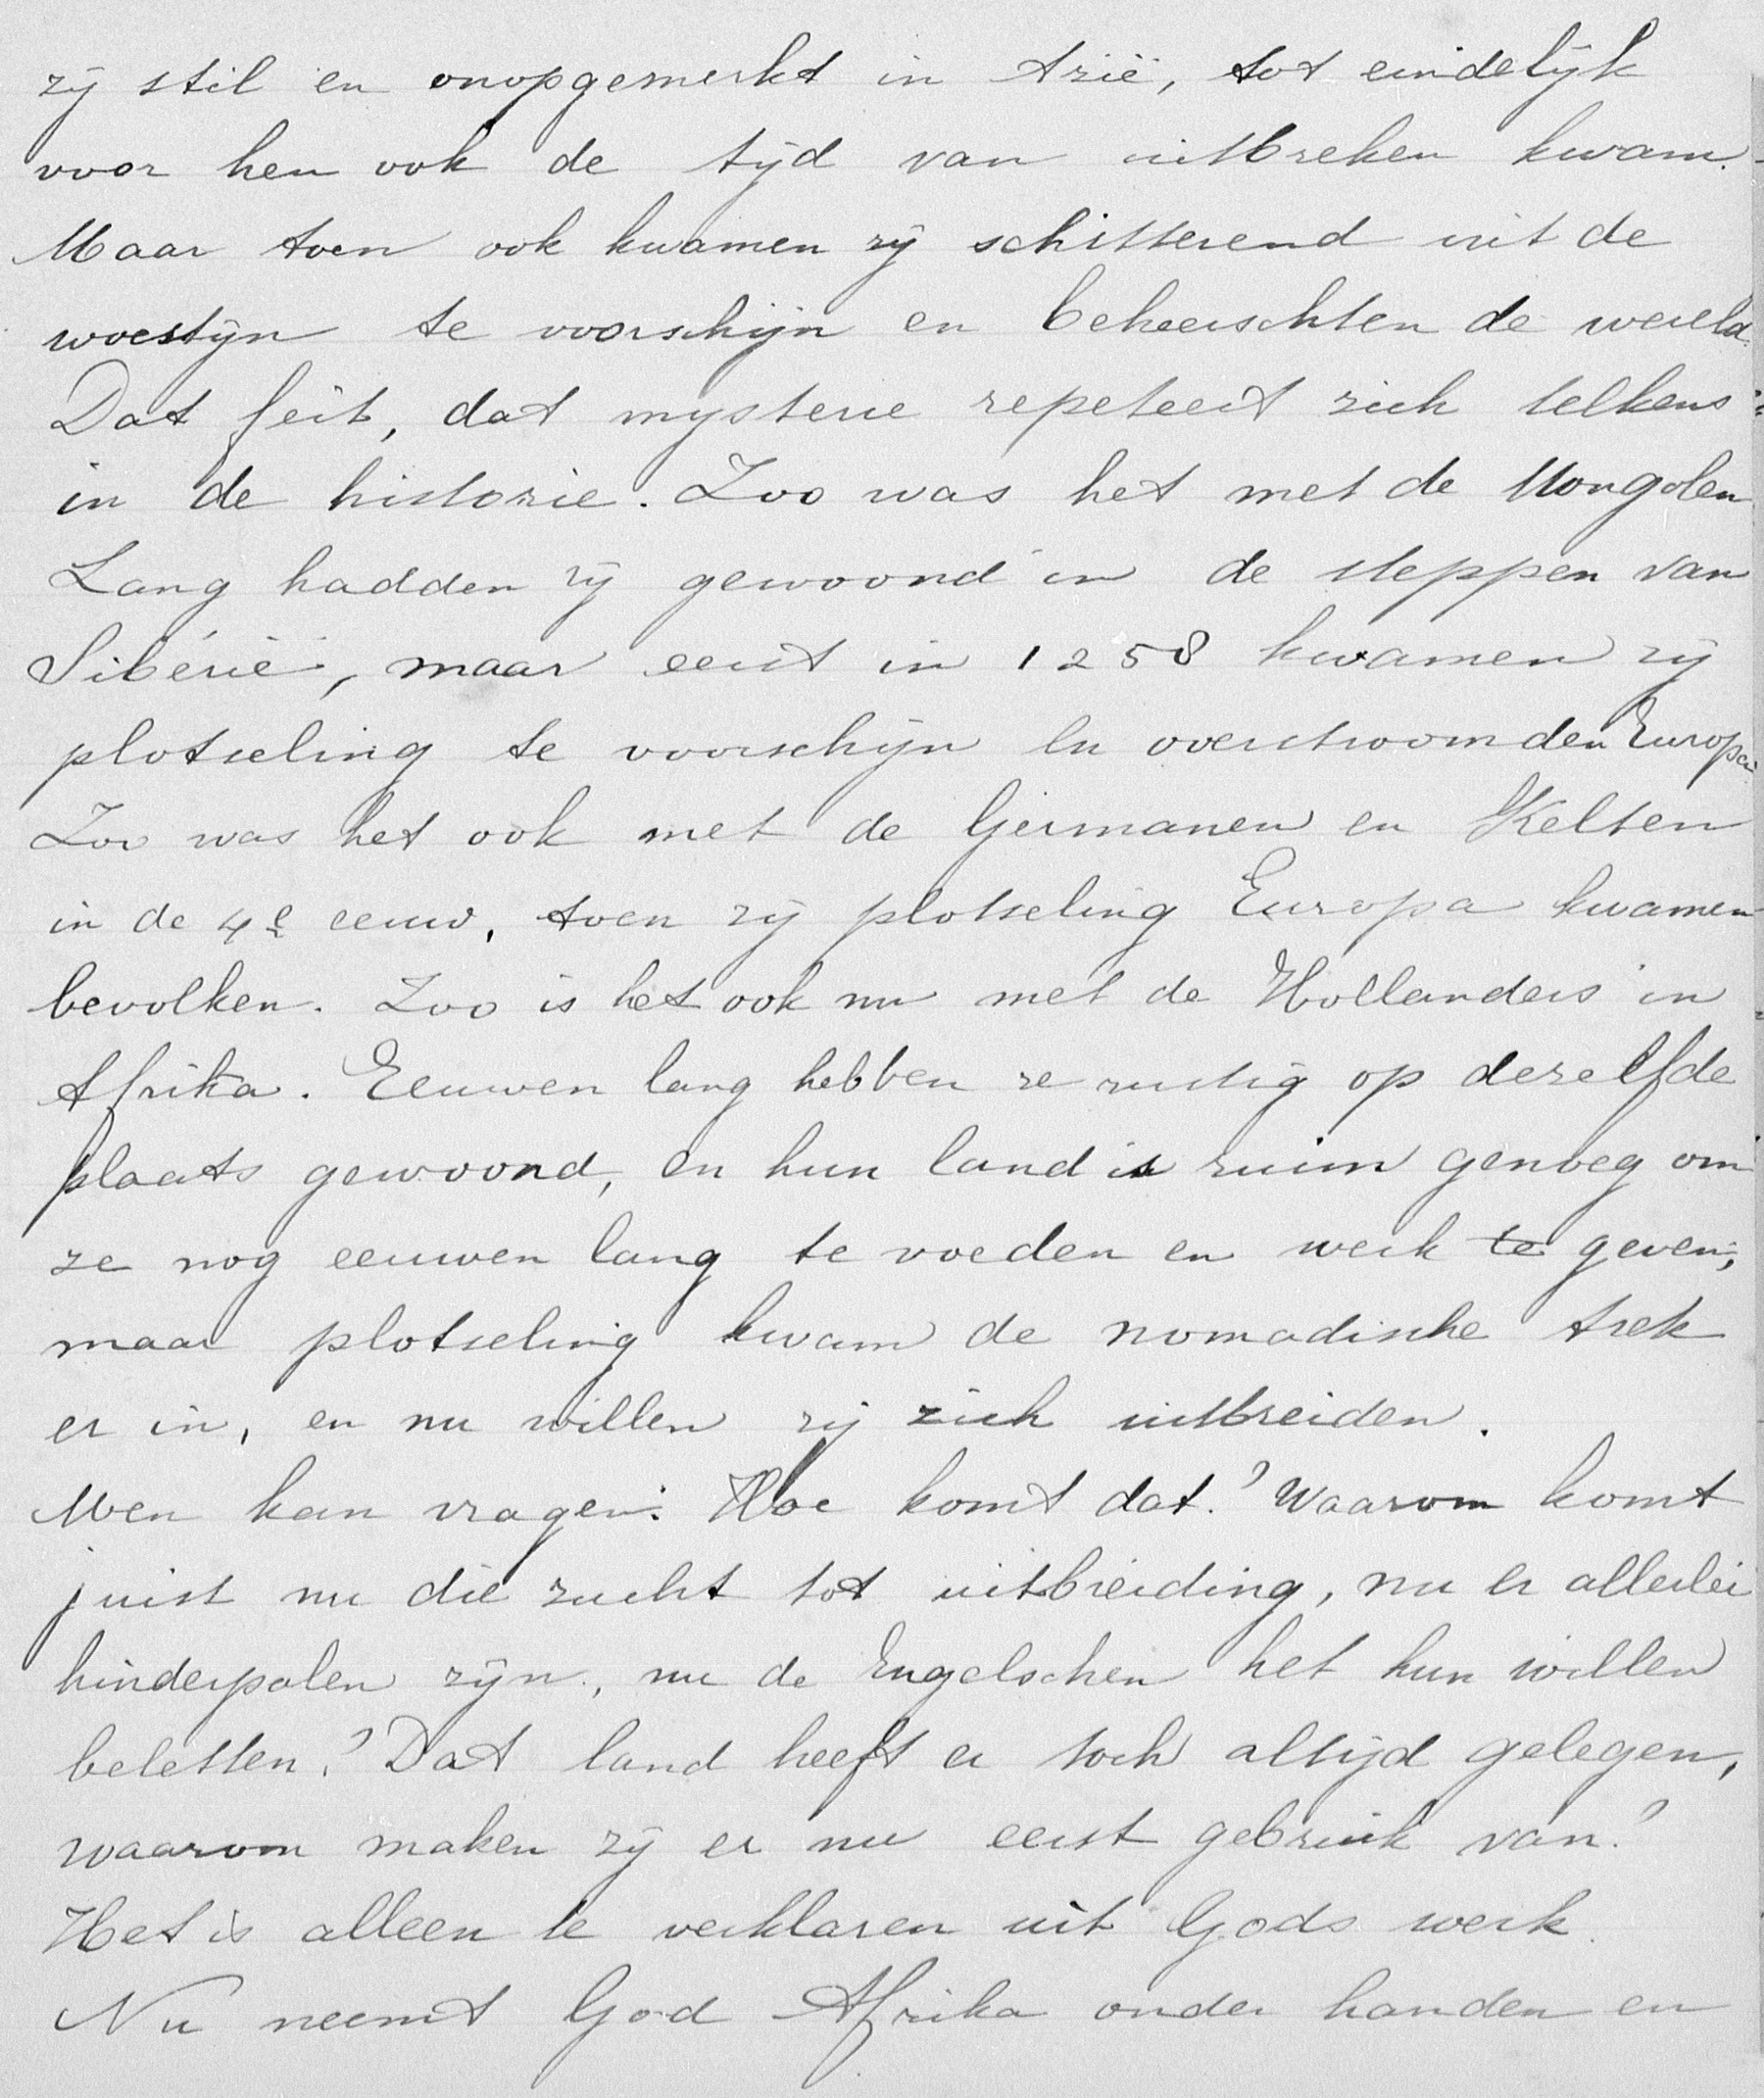 zij stil en onopgemerkt in Azië, tot eindelijk
voor hen ook de tijd van uitbreken kwam.
Maar toen ook kwamen zij schitterend uit de
woestijn te voorschijn en beheerschten de wereld.
Dat feit, dat mysterie repeteert zich telkens
in de historie. Zoo was het met de Mongolen
Lang hadden zij gewoond in de steppen van
Sibérië, maar eerst in 1258 kwamen zij
plotseling te voorschijn en overstroomden Europa.
Zoo was het ook met de Germanen en Kelten
in de 4e eeuw, toen zij plotseling Europa kwamen
bevolken. Zoo is het ook nu met de Hollanders in
Afrika. Eeuwen lang hebben ze rustig op dezelfde
plaats gewoond, en hun land is ruim genoeg om
ze nog eeuwen lang te voeden en werk te geven,
maar plotseling kwam de nomadische trek
er in, en nu willen zij zich uitbreiden.
Men kan vragen: Hoe komt dat? Waarom komt
juist nu die zucht tot uitbreiding, nu er allerlei
hinderpalen zijn, nu de Engelschen het hun willen
beletten? Dat land heeft er toch altijd gelegen,
waarom maken zij er nu eerst gebruik van?
Het is alleen te verklaren uit Gods werk.
Nu neemt God Afrika onder handen en